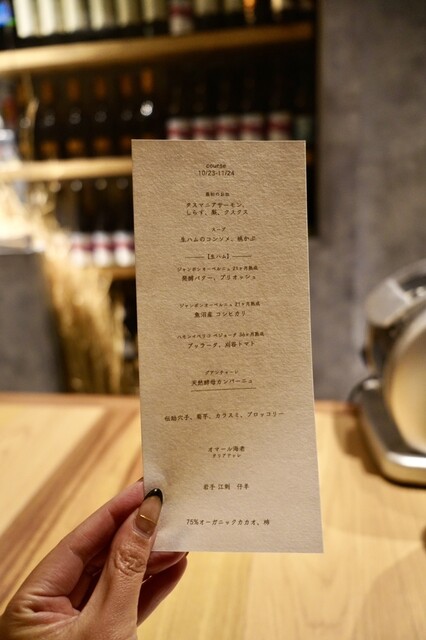 course
10/23-11/24
最初のお皿
タスマニアサーモン、
しらす、蕪、クスクス
スープ
生ハムのコンソメ、焼かぶ
【生ハム】
ジャンボンオーベルニュ 21ヶ月熟成
発酵バター、ブリオッシュ
ジャンボンオーベルニュ 21ヶ月熟成
魚沼産 コシヒカリ
ハモンイベリコ ベジョータ 36ヶ月熟成
ブッラータ、刈谷トマト
ブランティージ
天然酵母カンパーニュ
伝助穴子、菊芋、カラスミ、ブロッコリー
オマール海老
タリアテッレ
岩手 江刺 仔羊
75%オーガニックカカオ、柿